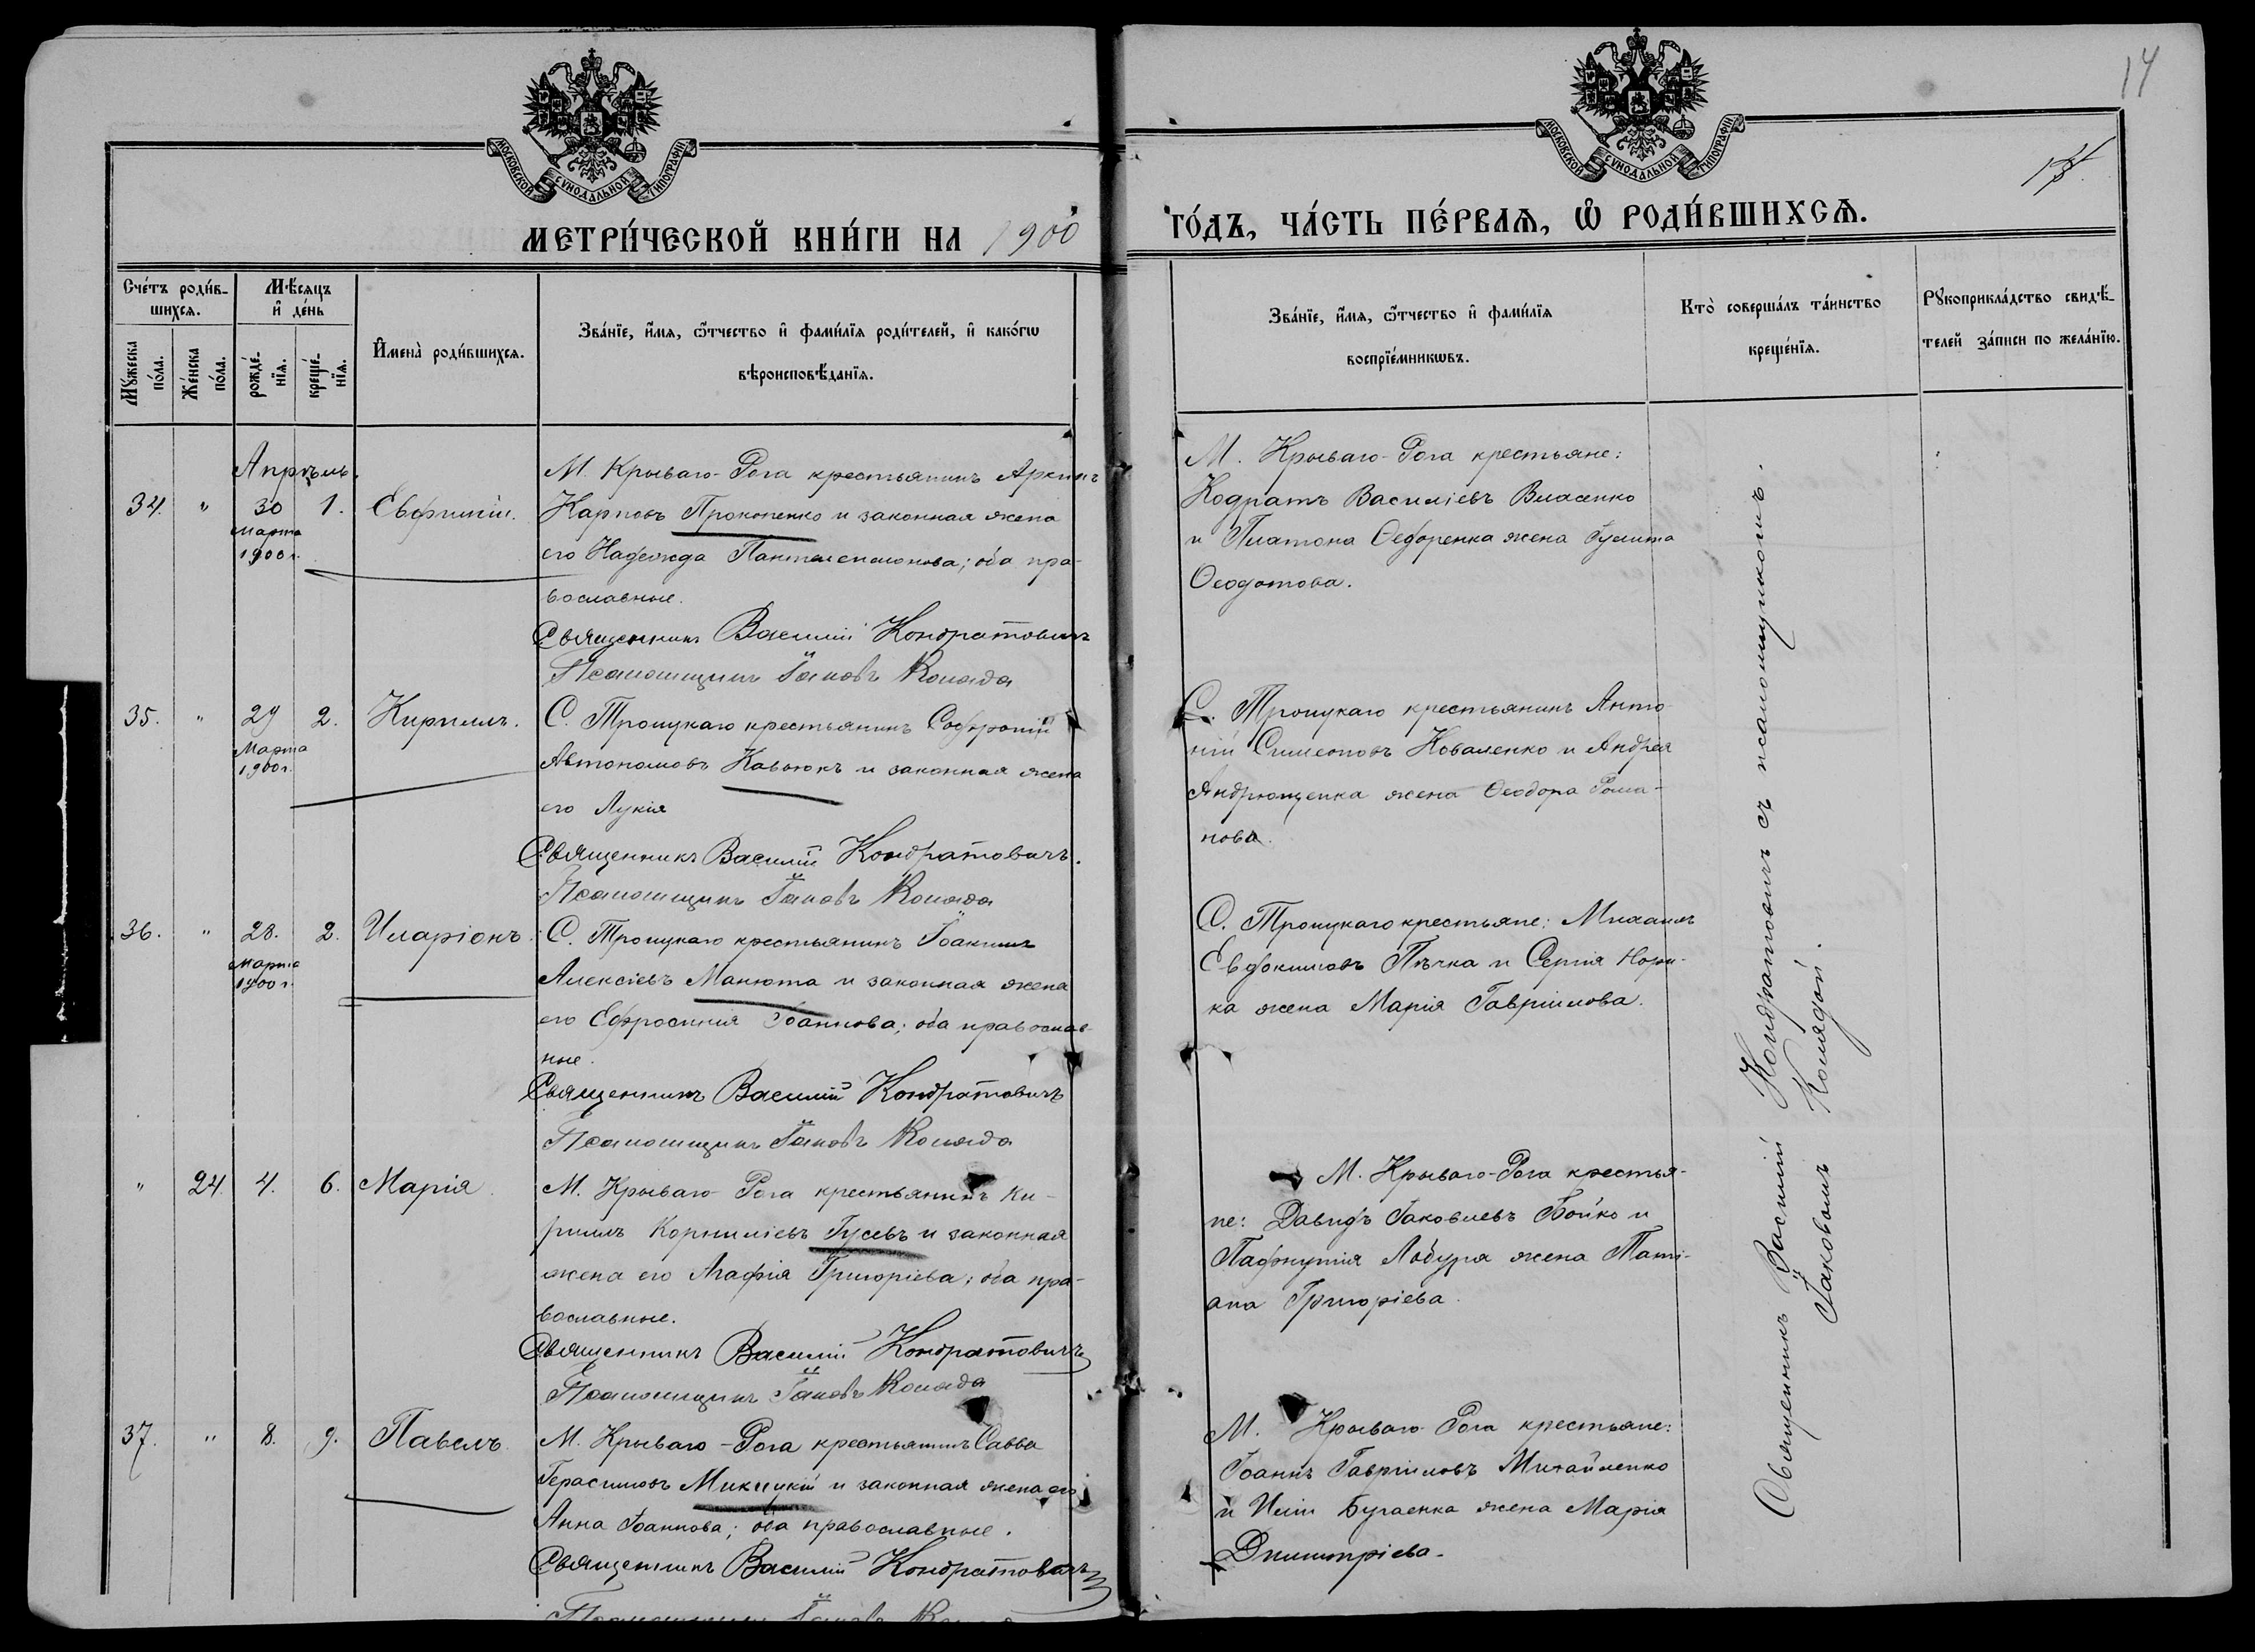 14
13
МОСКОВСКОЙ СѴНОДАЛЬНОЙ ТИПОГРАФІИ
МОСКОВСКОЙ СѴНОДАЛЬНОЙ ТИПОГРАФІИ
МЕТРИ́ЧЕСКОЙ КНИ́ГИ НА 1900
ГО́ДЪ, ЧА́СТЬ ПЕ́РВАѦ, Ѡ҆ РОДИ́ВШИХСѦ.
Сче́тъ роди́в-
шихсѧ.
Мꙋ́жеска
по́ла.
Же́нска
по́ла.
Мѣ́сяцъ
и҆ де́нь
рожде́-
нїѧ.
креще́-
нїѧ.
И҆мена̀ роди́вшихсѧ.
Зва́нїе, и҆́мѧ, ѻ҆́тчество и҆ фами́лїѧ роди́телей, и҆ како́гѡ
вѣроисповѣ́данїѧ.
Зва́нїе, и҆́мѧ, ѻ҆́тчество и҆ фами́лїѧ
воспрїе́мникѡвъ.
Кто̀ соверша́лъ та́инство
креще́нїѧ.
Рꙋкоприкла́дство свидѣ́-
телей за́писи по жела́нїю.
Апрѣль.
34. " 30 1. Евфимій.
Марта
1900 г.
М. Крываго-Рога крестьянинъ
Карповъ Прокопенко и законная жена
его Надежда Пантелеимонова; оба пра-
вославные.
Священникъ Василій Кондратовичъ
Псаломщикъ Іаковъ Коляда
М. Крываго-Рога крестьяне:
Кодратъ Василіевъ Власенко
и Платона Ѳедоренка жена Іулита
Ѳеодотова.
35. " 29 2. Кириллъ.
Марта
1900 г.
С. Троицкаго крестьянинъ Софроній
Автономовъ и законная жена
его Лукія
Священникъ Василій Кондратовичъ.
Псаломщикъ Іаковъ Коляда
С. Троицкаго крестьянинъ Анто-
ній Симеоновъ Коваленко и Андрея
Андрющенка жена Ѳеодора Рома-
нова.
36. " 28. 2. Иларіонъ.
Марта
1900 г.
С. Троицкаго крестьянинъ Іоакимъ
Алексіевъ Манюта и законная жена
его Ефросинія Іоаннова; оба православ-
ные.
Священникъ Василій Кондратовичъ
Псаломщикъ Іаковъ Коляда
С. Троицкаго крестьяне: Михаилъ
Евдокимовъ Пѣчка и Сергія
жена Марія Гавріилова.
" 24. 4. 6. Марія.
М. Крываго-Рога крестьянинъ Ки-
риллъ Корниліевъ Гусевъ и законная
жена его Агафія Григоріева; оба пра-
вославные.
Священникъ Василій Кондратовичъ
Псаломщикъ Іаковъ Коляда
М. Крываго-Рога крестья-
не: Давидъ Іаковлевъ Бойко и
Пафнутія Лобура жена Таті-
ана Григоріева.
37. " 8. 9. Павелъ.
М. Крываго-Рога крестьянинъ Савва
Герасимовъ Микицкій и законная жена его
Анна Іоаннова; оба православные.
Священникъ Василій Кондратовичъ
Псаломщикъ Іаковъ Коляда
М. Крываго-Рога крестьяне:
Іоаннъ Гавріиловъ Михайленко
и Иліи Бугаенка жена Марія
Димитріева.
Священникъ Василій Кондратовичъ съ псаломщикомъ
Іаковомъ Колядой.